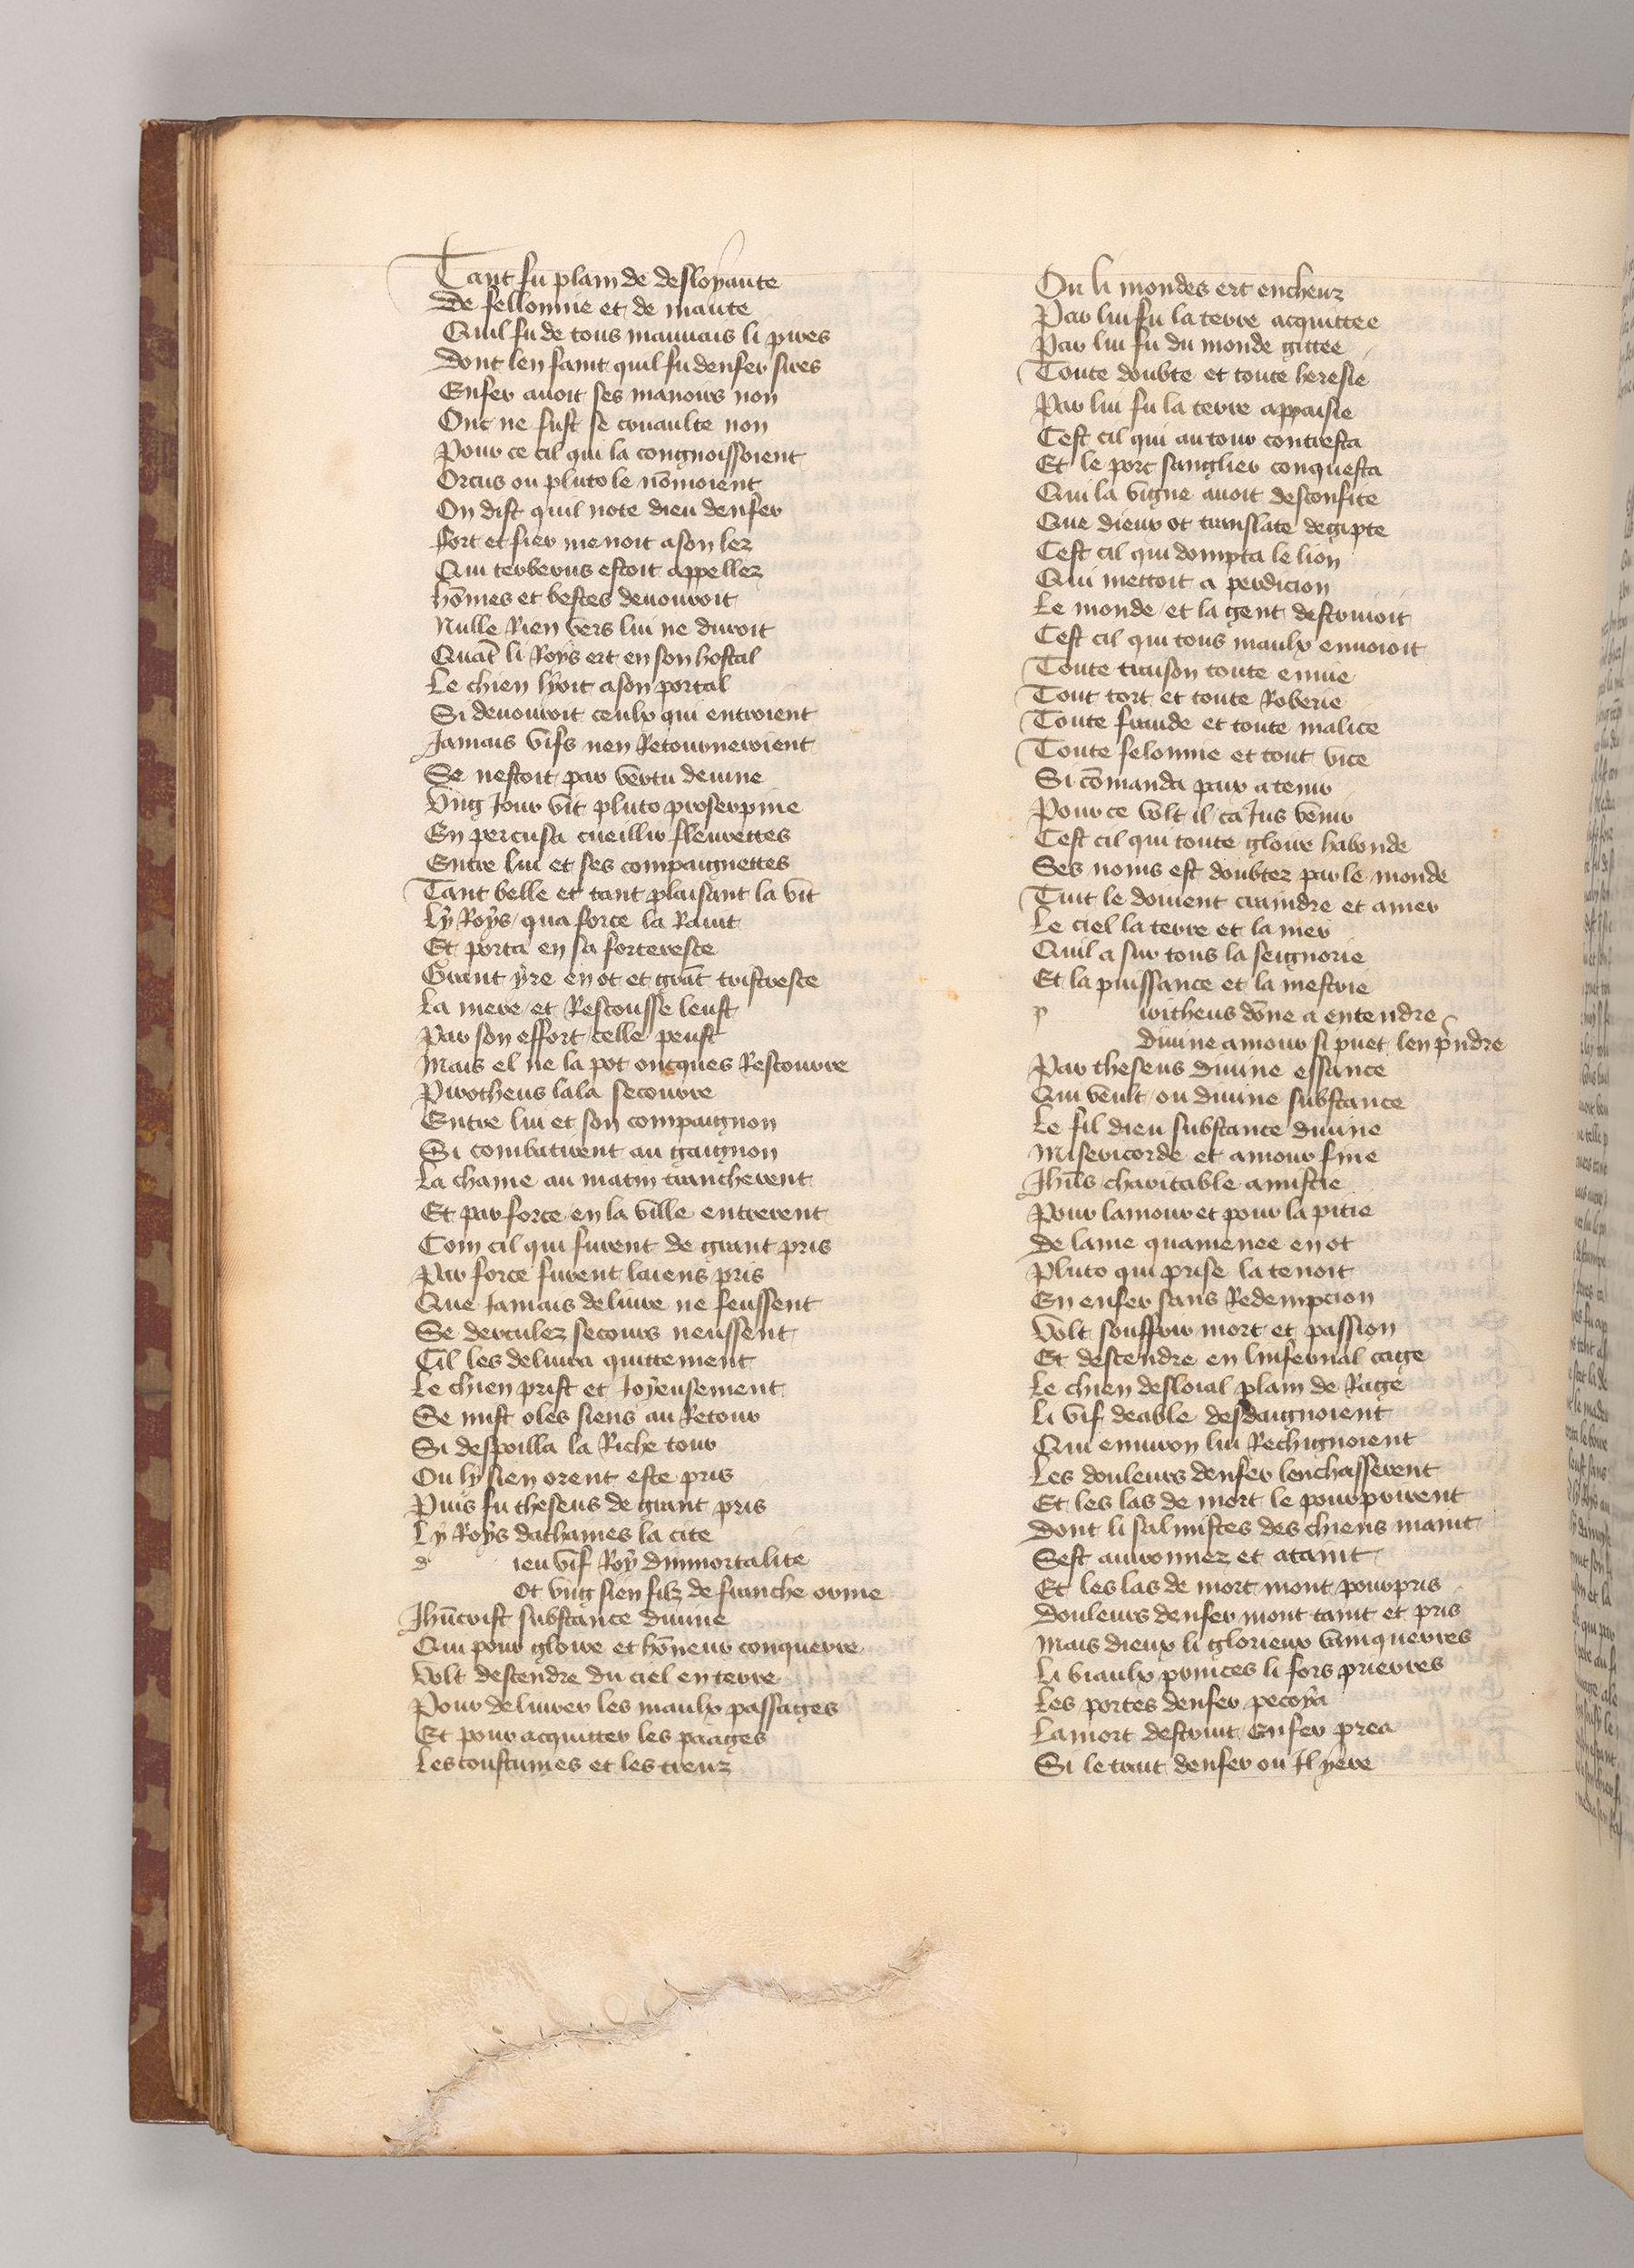 Tant fu plain de desloyaute
De fellonnie et de maute
Quil fu de tous mauuais li pires
Dont len faint quil fu denfer sires
Enfer auoit ses manoirs non
Onc ne fust se cruaulte non
Pour ce cil qui la congnoissoient
Orcus ou pluto le nōmoient
On dist quil note dieu denfer
Fort et fier menoit a son lez
Qui cerberus estoit appellez
hōmes et bestes deuouroit
Nulle Rien vers lui ne duroit
Quāt li Roys ert en son hostal
Le chien lyoit a son portal
Si deuouroit ceulx qui entroient
Jamais vifs nen Retourneroient
Se nestoit par vertu deuine
Ung Jour vit pluto proserpine
En percusa cueillir fleurettes
Entre lui et ses compaignettes
Tant belle et tant plaisant la vit
Ly Roys qua force la Rauit
Et porta en sa forteresce
Grant yre en ot et grāt tristresce
La mere et Rescousse leust
Par son effort celle peust
Mais el ne la pot oncques Rescourre
Pirotheus lala secourre
Entre lui et son compaignon
Si combatirent au gaignon
La chaine au matin trancherent
Et par force en la ville entrerent
Com cil qui furent de grant pris
Par force furent laiens pris
Que Jamais deliure ne feussent
Se derculez secours neussent
Cil les deliura quittement
Le chien prist et Joyeusement
Se mist o les siens au Retour
Si despoilla la Riche tour
Ou ly sien orent este pris
Puis fu theseus de grant pris
Ly Roys dathaines la cite
d ieu vif Roy dinmortalite
Ot vng sien filz de franche orine
Jhūcrist substance diuine
Qui pour gloire et hōneur conquerre
Volt descendre du ciel en terre
Pour deliurer les maulx passages
Et pour acquitter les paages
Les coustumes et les treuz
Ou li mondes ert encheuz
Par lui fu la terre acquittee
Par lui fu du monde gittee
Toute doubte et toute heresie
Par lui fu la terre appaisie
Cest cil qui au tour contresta
Et le porc sanglier conquesta
Qui la vigne auoit desconfite
Que dieux ot translate degipte
Cest cil qui dompta le lion
Qui mettoit a perdicion
Le monde et la gent destruioit
Cest cil qui tous maulx enuoioit
Toute traison toute enuie
Tout tort et toute Roberie
Toute fraude et toute malice
Toute felonnie et tout vice
Si cōmanda paix a tenir
Pour ce volt il ca Jus venir
Cest cil qui toute gloire habonde
Ses noms est doubtez par le monde
Tuit le doiuent craindre et amer
Le ciel la terre et la mer
Quil a sur tous la seignorie
Et la puissance et la mestrie
p iritheus dōne a entendre
Diuine amour si puet len p̄ndre
Par theseus diuine essance
Qui veult ou diuine substance
Le fil dieu substance diuine
Misericorde et amour fine
Jhūs charitable amistie
Pour lamour et pour la pitie
De lame quamenee en ot
Pluto qui prise la tenoit
En enfer sans Redempcion
Volt souffrir mort et passion
Et descendre en linfernal cage
Le chien desloial plain de Rage
Li vif deable desdaignoient
Qui enuiron lui Rechignoient
Les douleurs denfer lenchasserent
Et les las de mort le pourprirent
Dont li salmistes des chiens maint
Sest auironnez et ataint
Et les las de mort mont pourpris
Douleurs denfer mont taint et pris
Mais dieux li glorieux vainquerres
Li biaulx princes li fors prierres
Les portes denfer pecoya
La mort destruit Enfer prea
Si le trait denfer ou Il yere